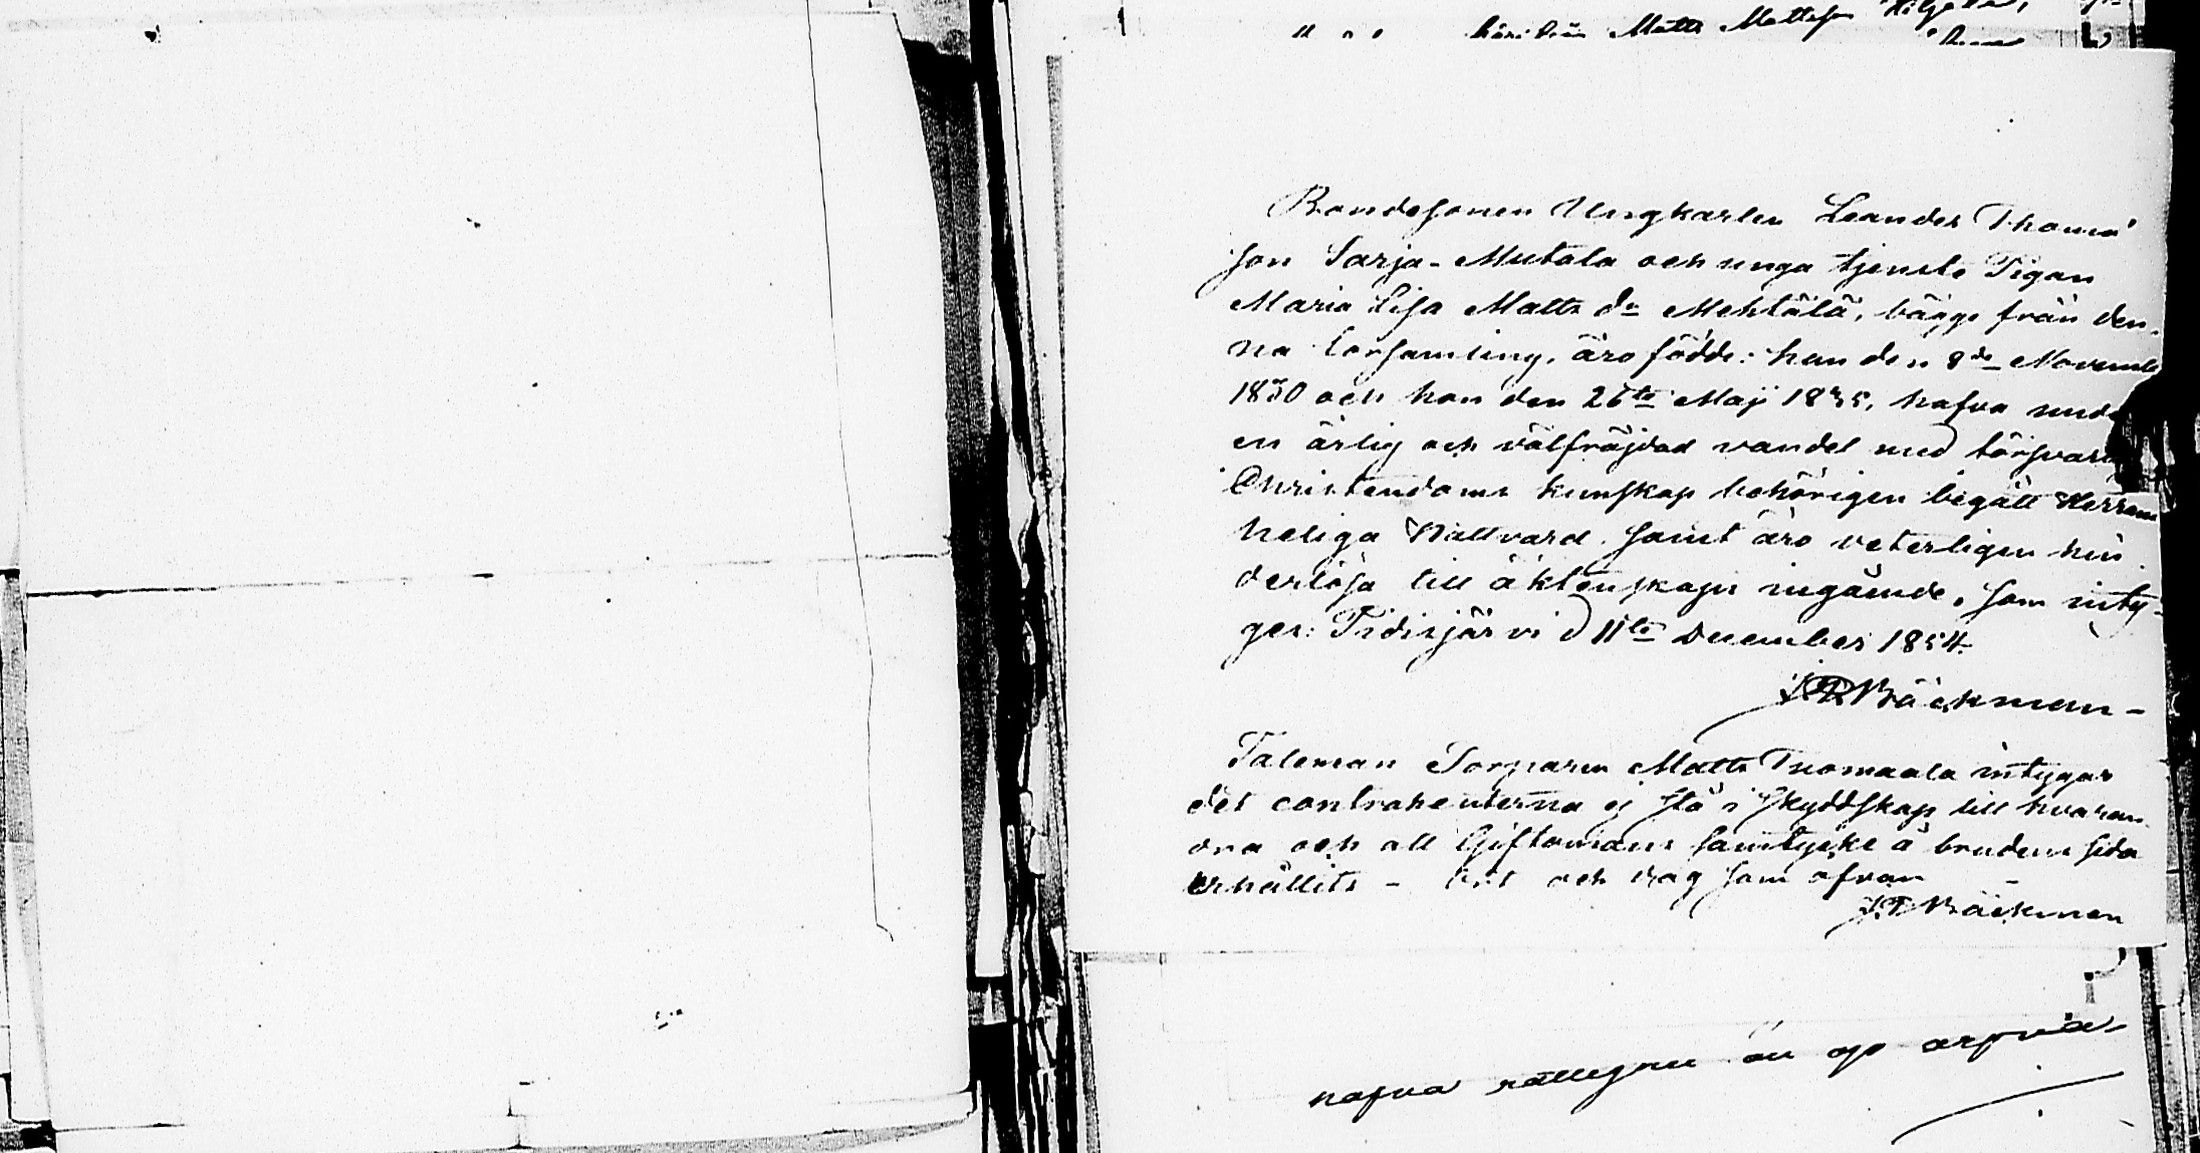 " " " Matts Mattsson
Bondesonen Ungkarlen Leander Thomæ
son Sarja-Mutala och unga tjenste Pigan
Maria Lisa Matts dr Mehtälä, bägge från den-
na Församling, äro födde: han den 8de Novemb
1830 och hon den 26te Maji 1835, hafva under
en ärlig och välfräjdad vandel med försvarl
Christendoms kunskap behörigen begått Herrans
heliga Nattvard, samt äro veterligen hin-
derlösa till äktenskaps ingående, som inty-
gar: Pidisjärvi d 11te December 1854.
J.R. Bäckman-
Taleman Torparen Matts Tuomaala intygar
det contrahenterna ej stå i skyddskap till hvaran-
dra och att Giftomans samtycke å brudens sida
erhållits - Ort och dag som ofvan -
J.R. Bäckman
hafva än